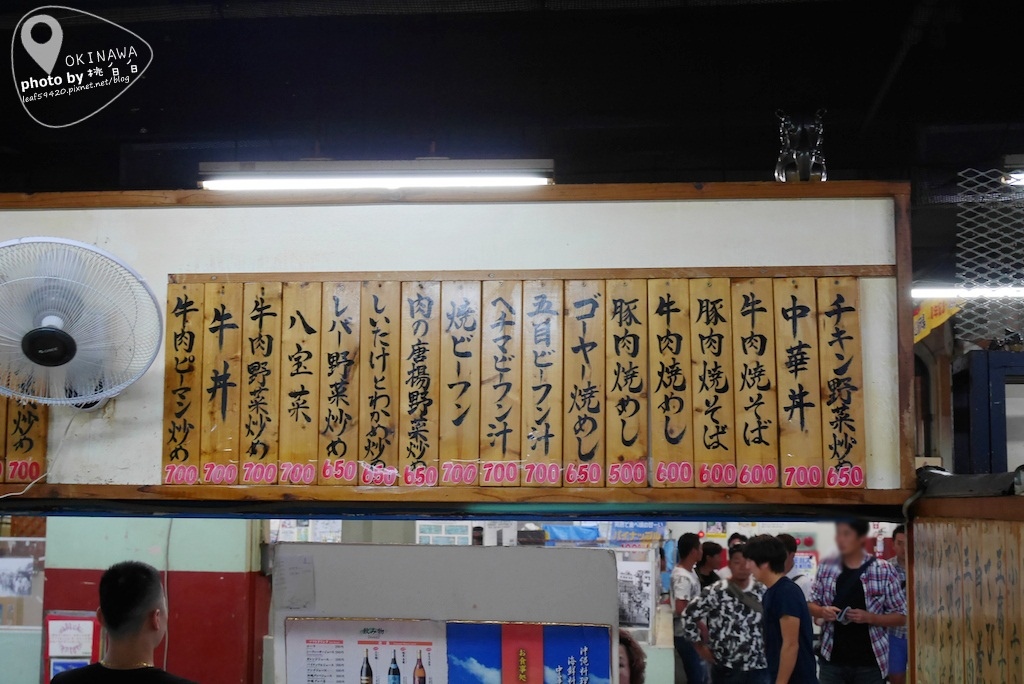 OKINAWA
photo by 桃白白
leaf59420.pixnet.net/blog
チキン野菜炒め
650
中華丼
700
牛肉焼そば
600
豚肉焼そば
600
牛肉焼めし
600
豚肉焼めし
500
ゴーヤー焼めし
650
五目ビーフン汁
700
ヘチマビーフン汁
700
焼ビーフン
700
肉の唐揚野菜炒め
650
しいたけとわかめ炒め
650
レバー野菜炒め
650
八宝菜
700
牛肉野菜炒め
700
牛丼
700
牛肉ピーマン炒め
700
炒め
700
飲み物
お食事処
沖縄料理
海鮮料理